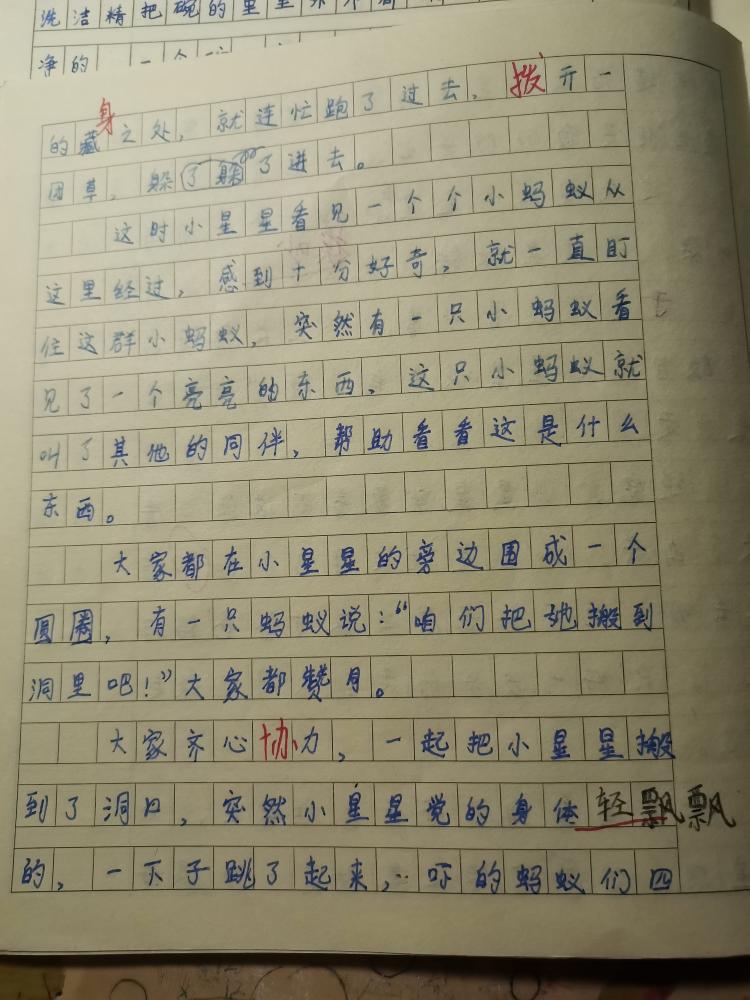 洗洁精把碗的里里外外
净的 一个
的藏身之处，就连忙跑了过去，拨开一
团草，躲了躲了进去。
这时小星星看见一个个小蚂蚁从
这里经过，感到十分好奇，就一直盯
住这群小蚂蚁，突然有一只小蚂蚁看
见了一个亮亮的东西，这只小蚂蚁就
叫了其他的同伴，帮助看看这是什么
东西。
大家都在小星星的旁边围成一个
圆圈，有一只蚂蚁说：“咱们把她搬到
洞里吧！”大家都赞月。
大家齐心协力，一起把小星星搬
到了洞口，突然小星星觉的身体轻飘飘
的，一下子跳了起来，吓的蚂蚁们四